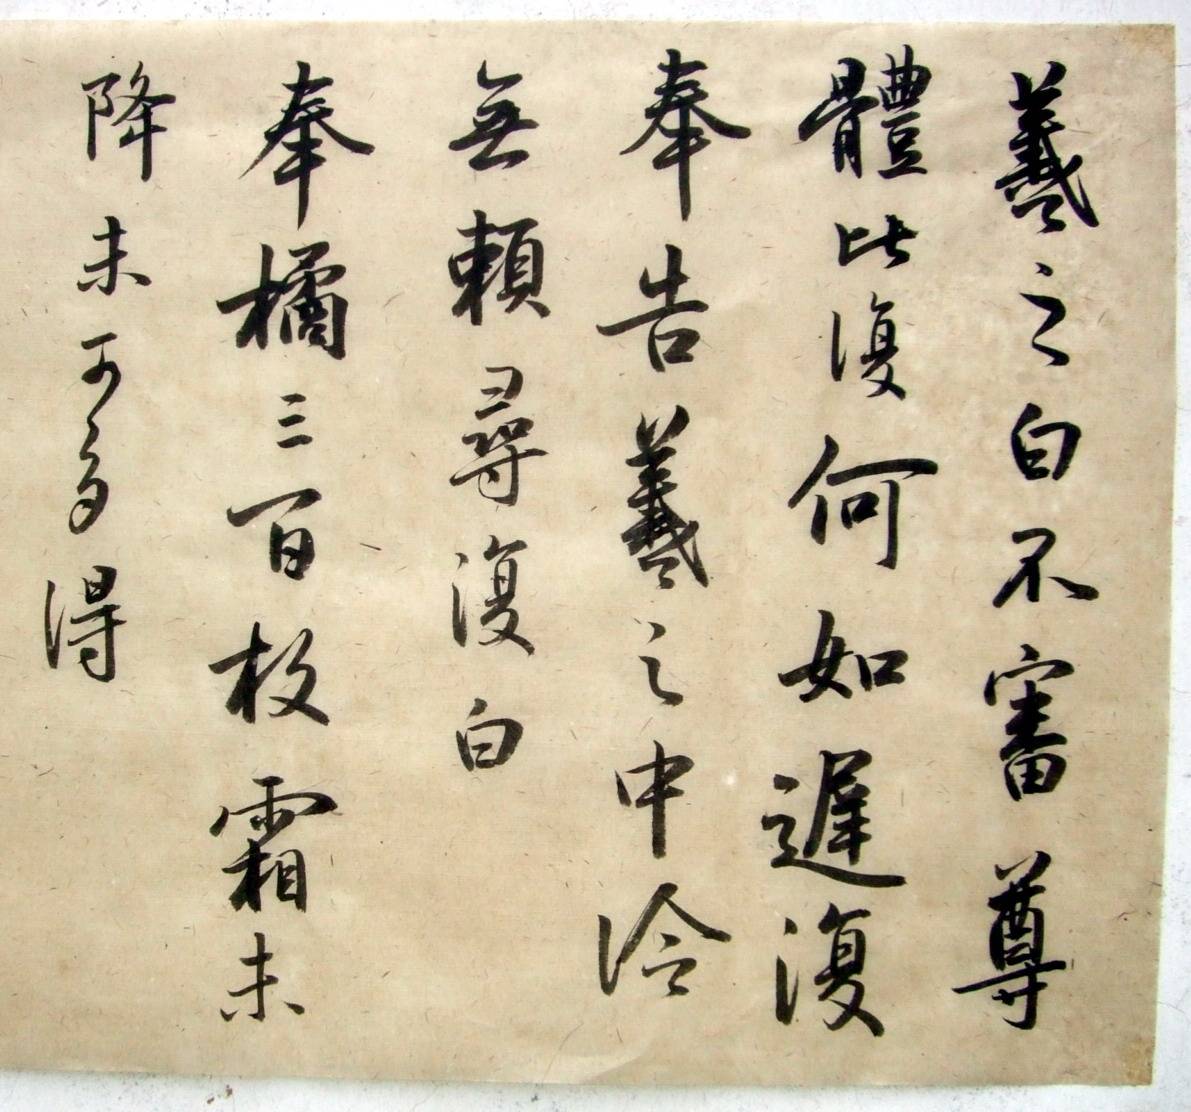 羲之白不審尊
體比復何如遲復
奉告羲之中冷
無賴尋復白
奉橘三百枚霜未
降未可多得